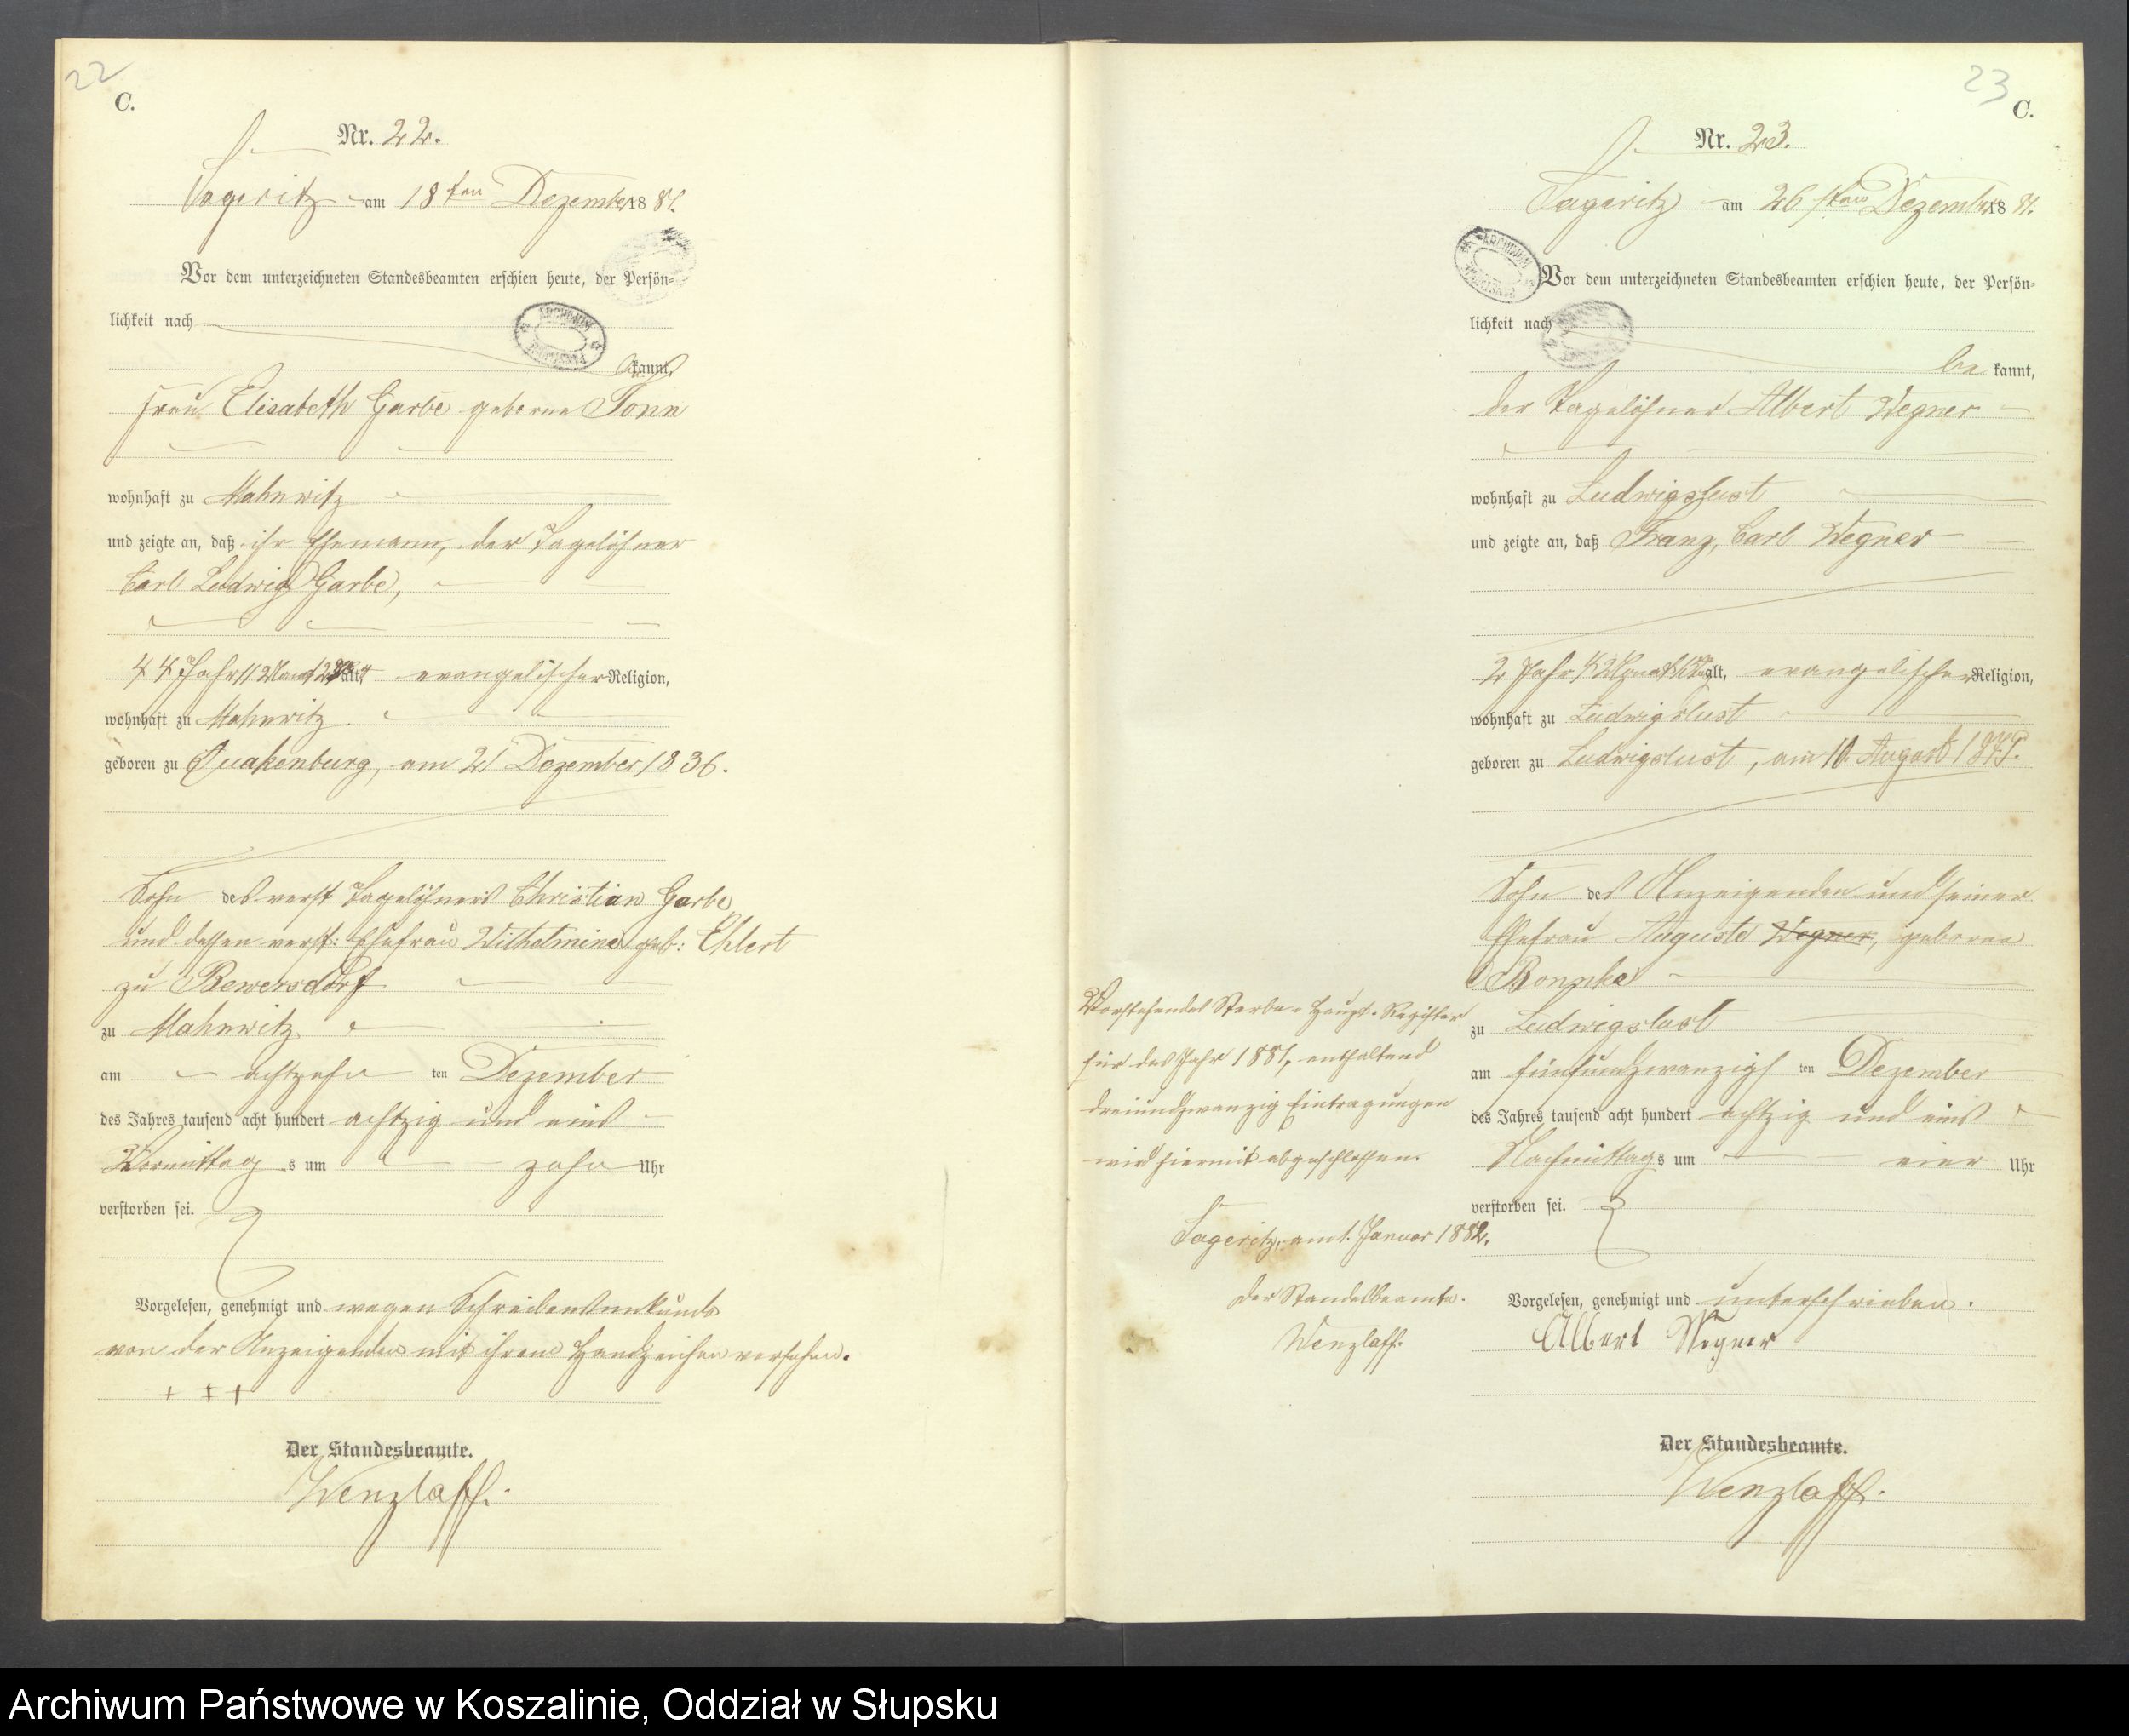 22
C.
Nr. 22.
Sageritz am 18ten Dezember 1881.
Vor dem unterzeichneten Standesbeamten erschien heute, der Persön-
lichkeit nach
bekannt,
Frau Elisabeth Garbe geborne Tonn
wohnhaft zu Mahnwitz
und zeigte an, daß ihr Ehemann, der Tagelöhner
Carl Ludwig Garbe,
44 Jahr 11 Monat alt, evangelischer Religion,
wohnhaft zu Mahnwitz
geboren zu Quakenburg, am 21 Dezember 1836.
Sohn des verst Tagelöhners Christian Garbe
und dessen verst: Ehefrau Wilhelmine geb: Ehlert
zu Bewersdorf
zu Mahnwitz
am achtzehn ten Dezember
des Jahres tausend acht hundert achtzig und eins
Vormittag s um zehn Uhr
verstorben sei.
Vorgelesen, genehmigt und wegen Schreibensunkunde
von der Anzeigenden mit ihrem Handzeichen versehen.
+ + +
Der Standesbeamte.
Wenzlaff.
23
C.
Nr. 23.
Sageritz am 26sten Dezember 1881.
Vor dem unterzeichneten Standesbeamten erschien heute, der Persön-
lichkeit nach
be kannt,
der Tagelöhner Albert Wegner
wohnhaft zu Ludwigslust
und zeigte an, daß Franz, Carl Wegner
2 Jahr 4 Monat alt, evangelischer Religion,
wohnhaft zu Ludwigslust
geboren zu Ludwigslust, am 10. August 1879.
Sohn des Anzeigenden und seiner
Ehefrau Auguste Wegner, geborne
Bonnke
zu Ludwigslust
am fünfundzwanzigs ten Dezember
des Jahres tausend acht hundert achtzig und eins
Nachmittags um vier Uhr
verstorben sei.
Vorgelesen, genehmigt und unterschrieben.
Albert Wegner
Der Standesbeamte.
Wenzlaff.
Vorstehendes Sterbe-Haupt-Register
für das Jahr 1881, enthaltend
dreiundzwanzig Eintragungen
wird hiermit abgeschlossen.
Sageritz, am 1. Januar 1882.
Der Standesbeamte.
Wenzlaff.
Archiwum Państwowe w Koszalinie, Oddział w Słupsku